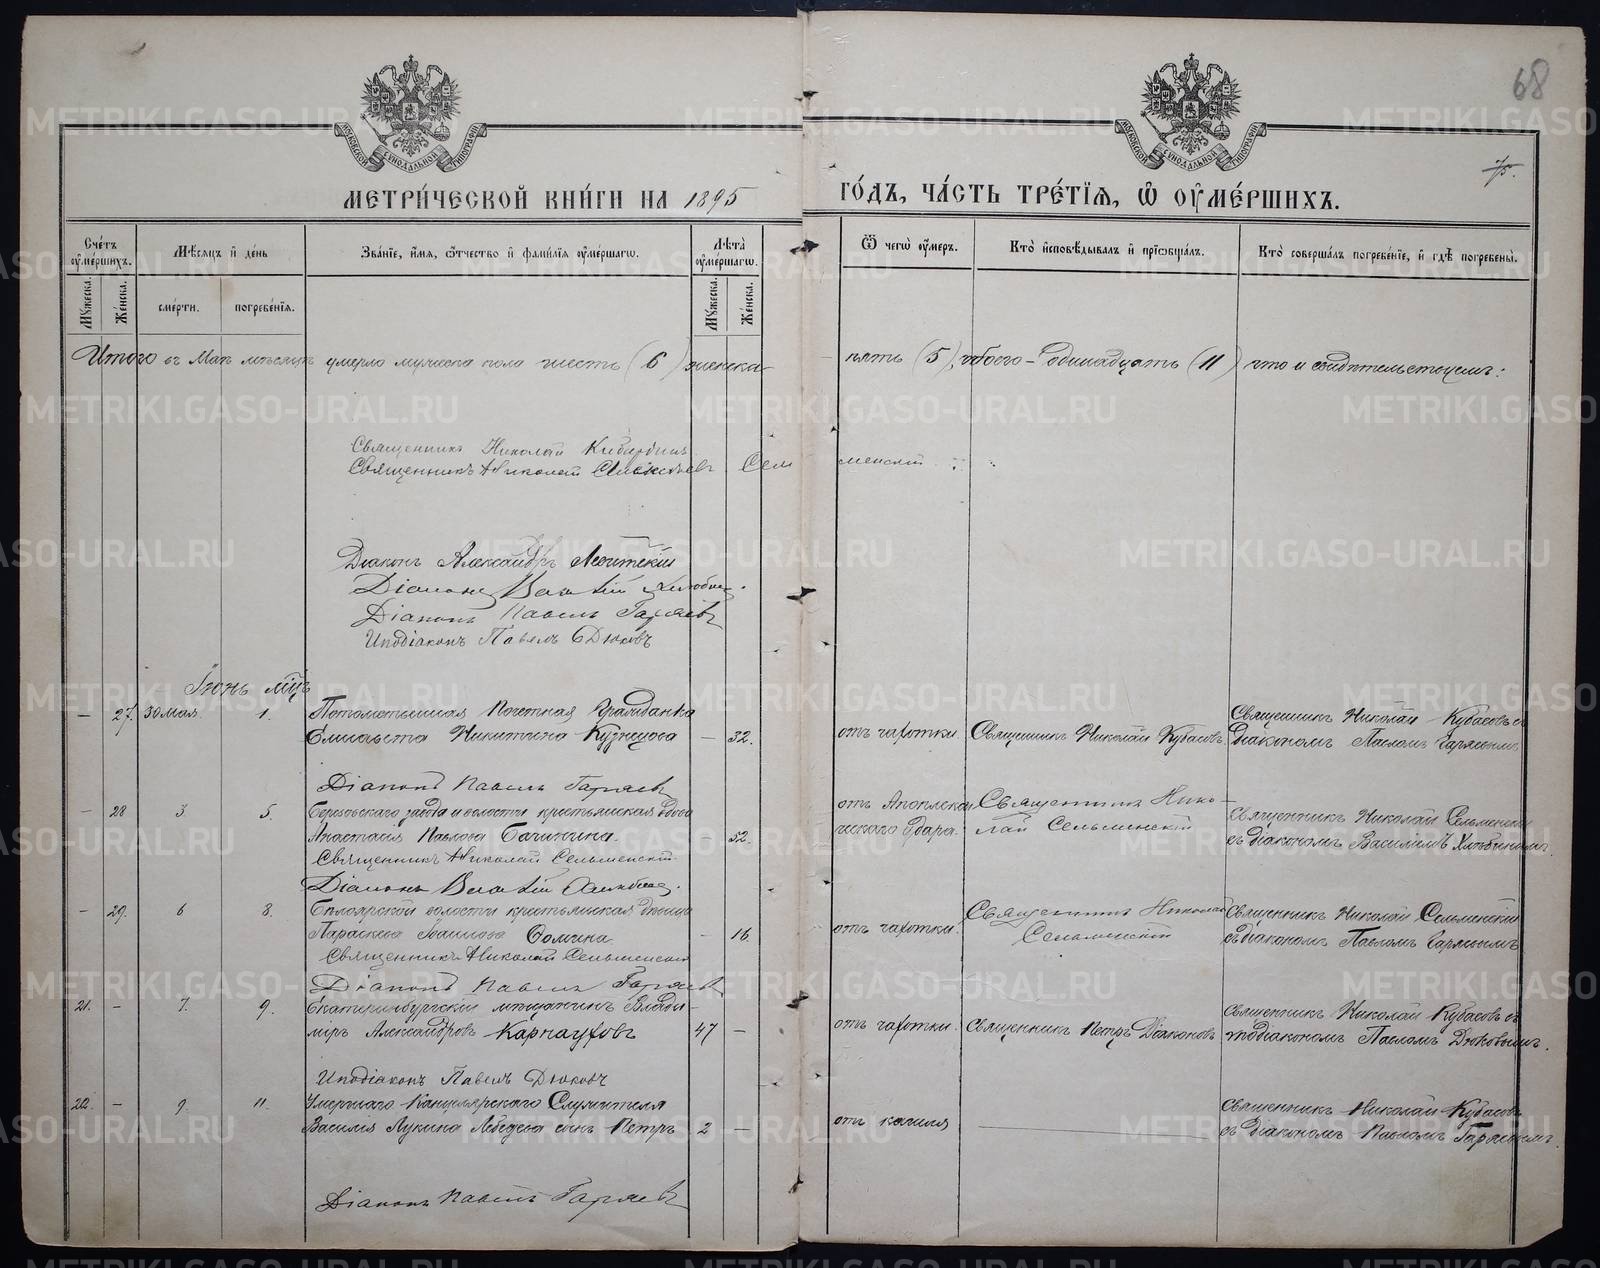 68
75.
МЕТРИ́ЧЕСКОЙ КНИ́ГИ НА 1895 ГО́ДЪ, ЧА́СТЬ ТРЕ́ТІѦ, Ѽ ОУ҆МЕ́РШИХЪ.
Сче́тъ оу҆ме́ршихъ.
Мꙋжеска.
Же́нска.
Мѣ́сѧцъ и҆ де́нь
сме́рти.
погребе́нїѧ.
Зва́нїе, и҆́мѧ, ѻ҆́тчество и҆ фами́лїѧ оу҆ме́ршагѡ.
Лѣ́та оу҆ме́ршагѡ.
Мꙋжеска.
Же́нска.
Ѿ чегѡ̀ оу҆́меръ.
Кто̀ и҆сповѣ́дывалъ и҆ прїѡбща́лъ.
Кто̀ соверша́лъ погребе́нїе, и҆ гдѣ̀ погребены̀.
Итого въ Маѣ мѣсяцѣ умерло мужеска пола шесть (6) женска- пять (5), обоего - одинадцать (11) что и свидѣтельствуемъ:
Священникъ Николай
Священникъ Николай Сельменскій
Діаконъ Александръ
Діаконъ Василій Хлѣбинъ.
Діаконъ Павелъ Гаряевъ
Иподіаконъ Павелъ Дюковъ
Іюнь мѣц
– 27. 30 мая. 1. Потомственная Почетная Гражданка
Елисавета Никитина Кузнецова – 32. отъ чахотки. Священникъ Николай Кубасовъ. Священникъ Николай Кубасовъ съ
Діакономъ Павломъ Гаряевымъ
Діаконъ Павелъ Гаряевъ
– 28 3 5. Березовскаго завода и волости крестьянская вдова
Анастасія Павлова Бачинина. 52. отъ Апоплекси-
ческаго удара. Священникъ Нико-
лай Сельменскій Священникъ Николай Сельменскій
съ діакономъ Василіемъ Хлѣбинымъ.
Священникъ Николай Сельменскій
Діаконъ Василій Хлѣбинъ.
– 29. 6 8. Бѣлоярской волости крестьянская дѣвица
Параскева Іоаннова Ѳомина – 16. отъ чахотки. Священникъ Николай
Сельменскій Священникъ Николай Сельменскій
съ діакономъ Павломъ Гаряевымъ
Священникъ Николай Сельменскій
Діаконъ Павелъ Гаряевъ
21. – 7. 9. Екатеринбургскій мѣщанинъ Влади-
міръ Александровъ Карнауховъ 47 – отъ чахотки. Священникъ Петръ Діаконовъ Священникъ Николай Кубасовъ съ
иподіакономъ Павломъ Дюковымъ.
Иподіаконъ Павелъ Дюковъ
22. – 9. 11. Умершаго Канцелярскаго Служителя
Василія Лукина Лебедева сынъ Петръ 2 – отъ кашля Священникъ Николай Кубасовъ
съ діакономъ Павломъ Гаряевымъ.
Діаконъ Павелъ Гаряевъ